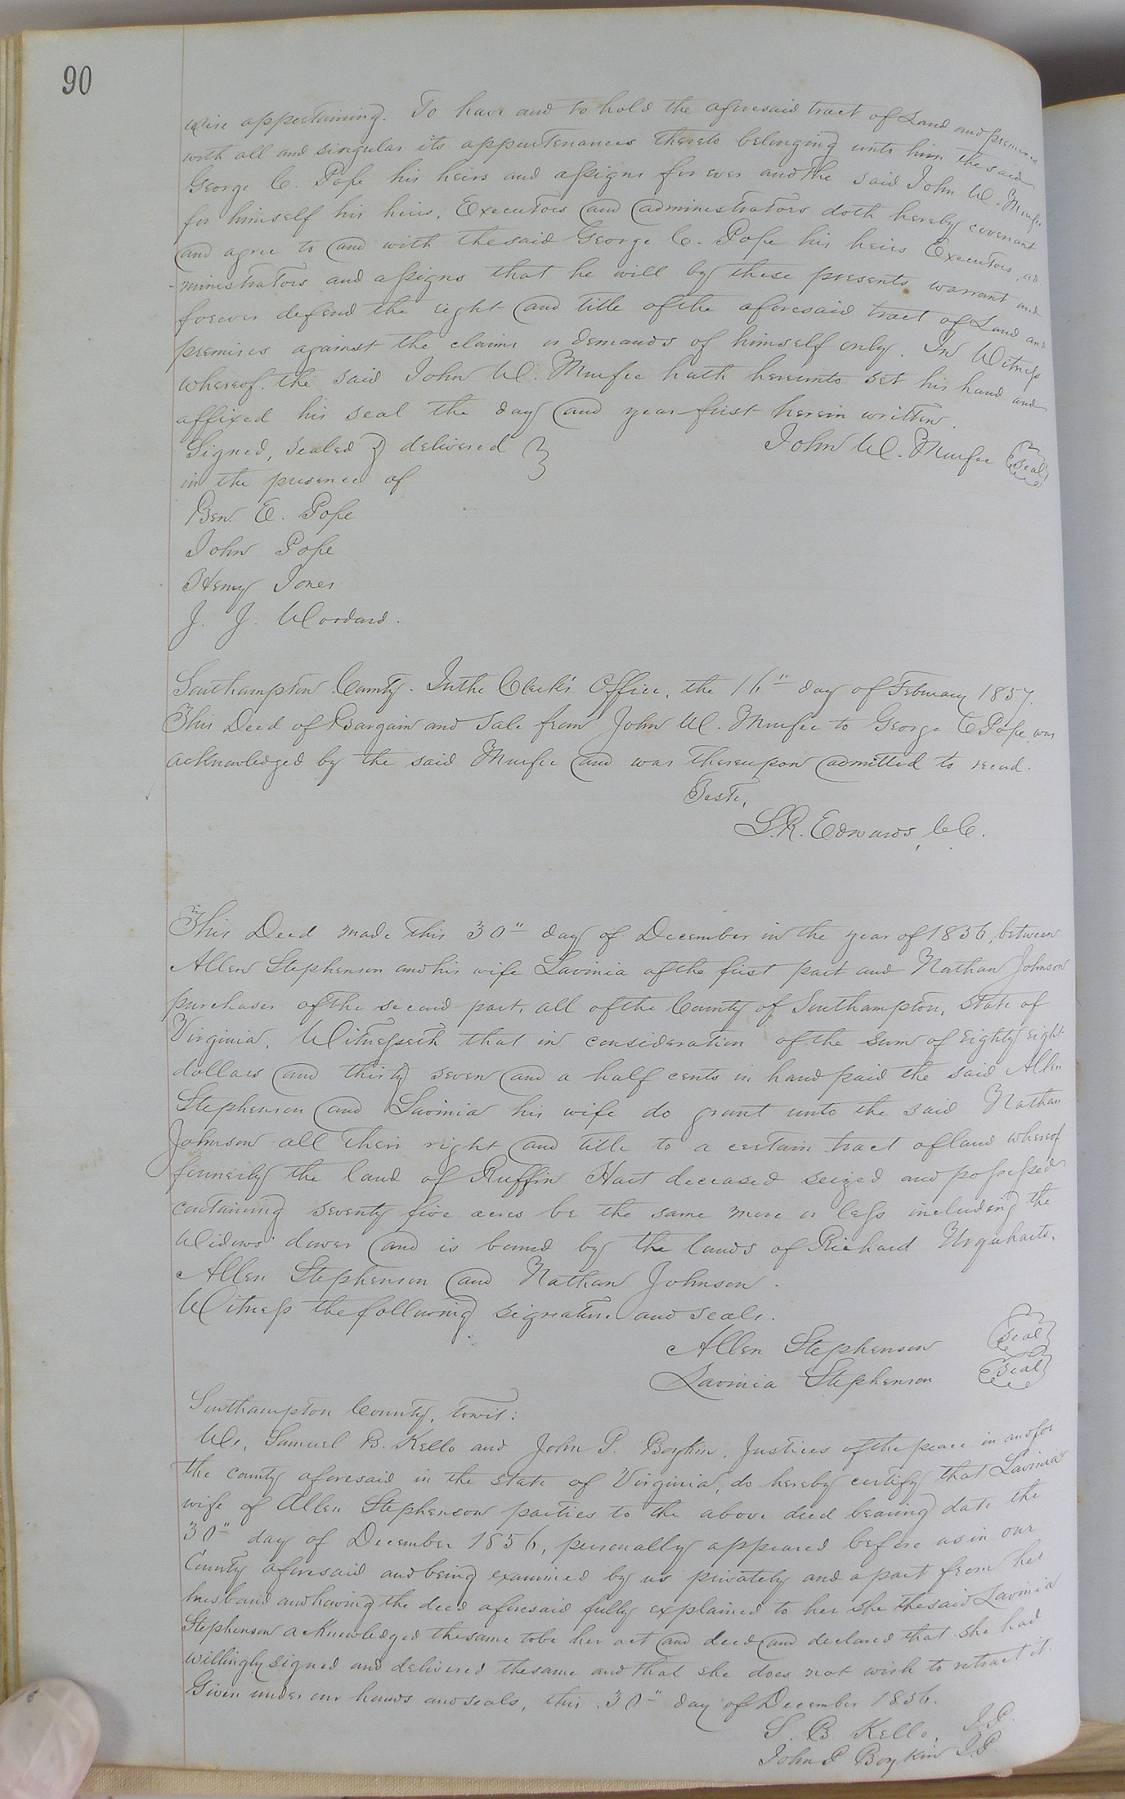 90
wise appertaining. To have and to hold the aforesaid tract of Land and premises
with all and singular its appurtenances thereto belonging unto him the said
George C. Pope his heirs and assigns forever and the said John W. Murfee
for himself his heirs, Executors and administrators doth hereby covenant
and agree to and with the said George C. Pope his heirs Executors, ad
-ministrators and assigns that he will by these presents warrant and
forever defend the right and title of the aforesaid tract of Land and
premises against the claims or demands of himself only. In Witness
whereof, the said John W. Murfee hath hereunto set his hand and
affixed his seal the day and year first herein written.
Signed, sealed & delivered } John W. Murfee (seal)
in the presence of
Ben. E. Pope
John Pope
Henry Jones
J. J. Woodard.
Southampton County. In the Clerk's Office, the 16" day of February 1857.
This Deed of Bargain and Sale from John W. Murfee to George C Pope was
acknowledged by the said Murfee and was thereupon admitted to record.
Teste,
L.R. Edwards, C.C.
This Deed made this 30" day of December in the year of 1856, between
Allen Stephenson and his wife Lavinia of the first part and Nathan Johnson
purchaser of the second part, all of the County of Southampton, State of
Virginia, Witnesseth that in consideration of the sum of Eighty eight
dollars and thirty seven and a half cents in hand paid the said Allen
Stephenson and Lavinia his wife do grant unto the said Nathan
Johnson all their right and title to a certain tract of land whereof
formerly the land of Ruffin Hart deceased seized and possessed
containing seventy five acres be the same more or less including the
Widows' dower and is bound by the lands of Richard Urquharts,
Allen Stephenson and Nathan Johnson.
Witness the following signature and seals.
Allen Stephenson (seal)
Lavinia Stephenson (seal)
Southampton County, towit:
We, Samuel B. Kello and John P. Boykin, Justices of the peace in and for
the county aforesaid in the state of Virginia, do hereby certify that Lavinia
wife of Allen Stephenson parties to the above deed bearing date the
30" day of December 1856, personally appeared before us in our
County aforesaid and being examined by us privately and apart from her
husband and having the deed aforesaid fully explained to her she the said Lavinia
Stephenson acknowledged the same to be her act and deed and declared that she had
willingly signed and delivered the same and that she does not wish to retract it.
Given under our hands and seals, this 30" day of December 1856.
S. B Kello, J.P.
John P Boykin J.P.